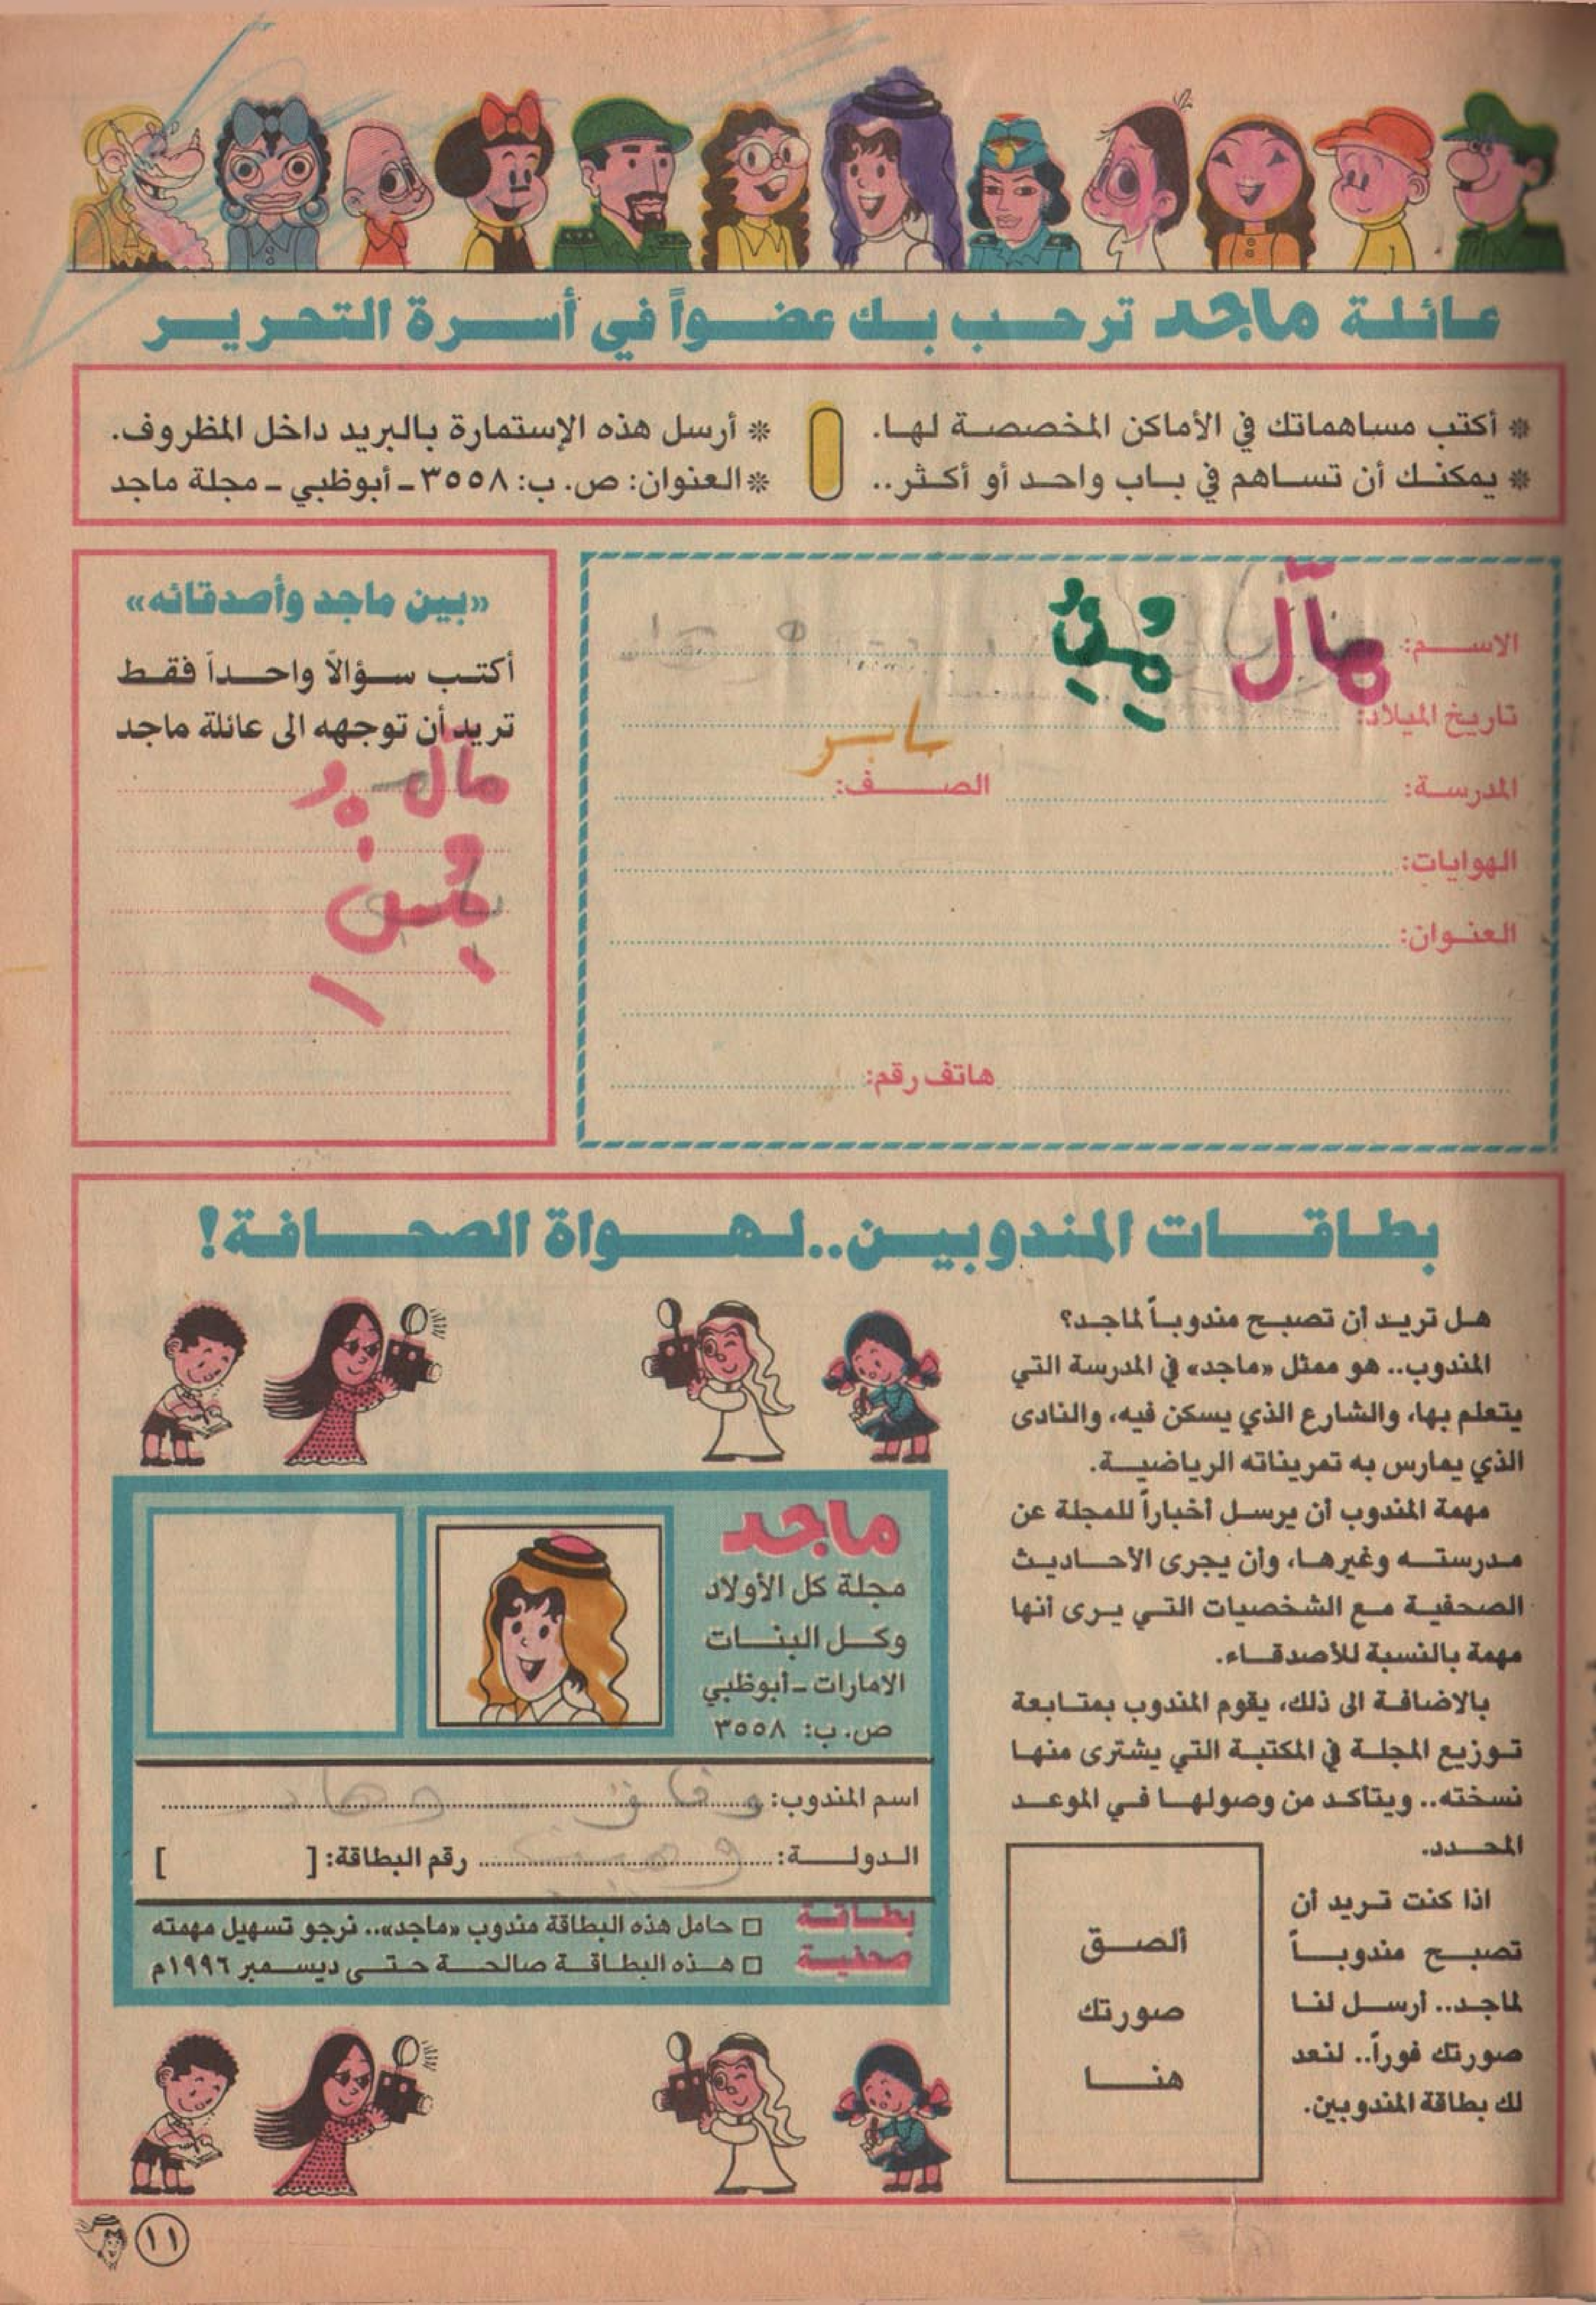 عائلة ماجد ترحب بك عضواً في أسرة التحرير
* أكتب مساهماتك في الأماكن المخصصة لها.
* يمكنك أن تساهم في باب واحد أو أكثر..
* أرسل هذه الإستمارة بالبريد داخل المظروف.
* العنوان: ص. ب: ٣٥٥٨ ـ أبوظبي ـ مجلة ماجد
الاسم:
تاريخ الميلاد:
المدرسة: الصف:
الهوايات:
العنوان:
هاتف رقم:
«بين ماجد وأصدقائه»
أكتب سؤالاً واحداً فقط
تريد أن توجهه الى عائلة ماجد
بطاقات المندوبين..لهواة الصحافة!
هل تريد أن تصبح مندوباً لماجد؟
المندوب.. هو ممثل «ماجد» في المدرسة التي
يتعلم بها، والشارع الذي يسكن فيه، والنادى
الذي يمارس به تمريناته الرياضية.
مهمة المندوب أن يرسل أخباراً للمجلة عن
مدرسته وغيرها، وأن يجرى الأحاديث
الصحفية مع الشخصيات التي يرى أنها
مهمة بالنسبة للأصدقاء.
بالاضافة الى ذلك، يقوم المندوب بمتابعة
توزيع المجلة في المكتبة التي يشترى منها
نسخته.. ويتأكد من وصولها في الموعد
المحدد.
اذا كنت تريد أن
تصبح مندوباً
لماجد.. أرسل لنا
صورتك فوراً.. لنعد
لك بطاقة المندوبين.
ألصق
صورتك
هنا
ماجد
مجلة كل الأولاد
وكل البنات
الامارات ـ أبوظبي
ص. ب: ٣٥٥٨
اسم المندوب:
الدولة: رقم البطاقة: [ ]
بطاقة
صحفية
□ حامل هذه البطاقة مندوب «ماجد».. نرجو تسهيل مهمته
□ هذه البطاقة صالحة حتى ديسمبر ١٩٩٦م
١١